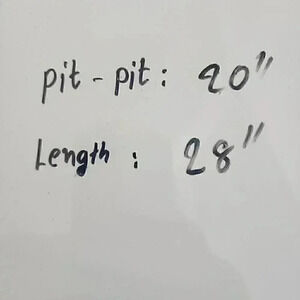 pit - pit : 20"
Length : 28"